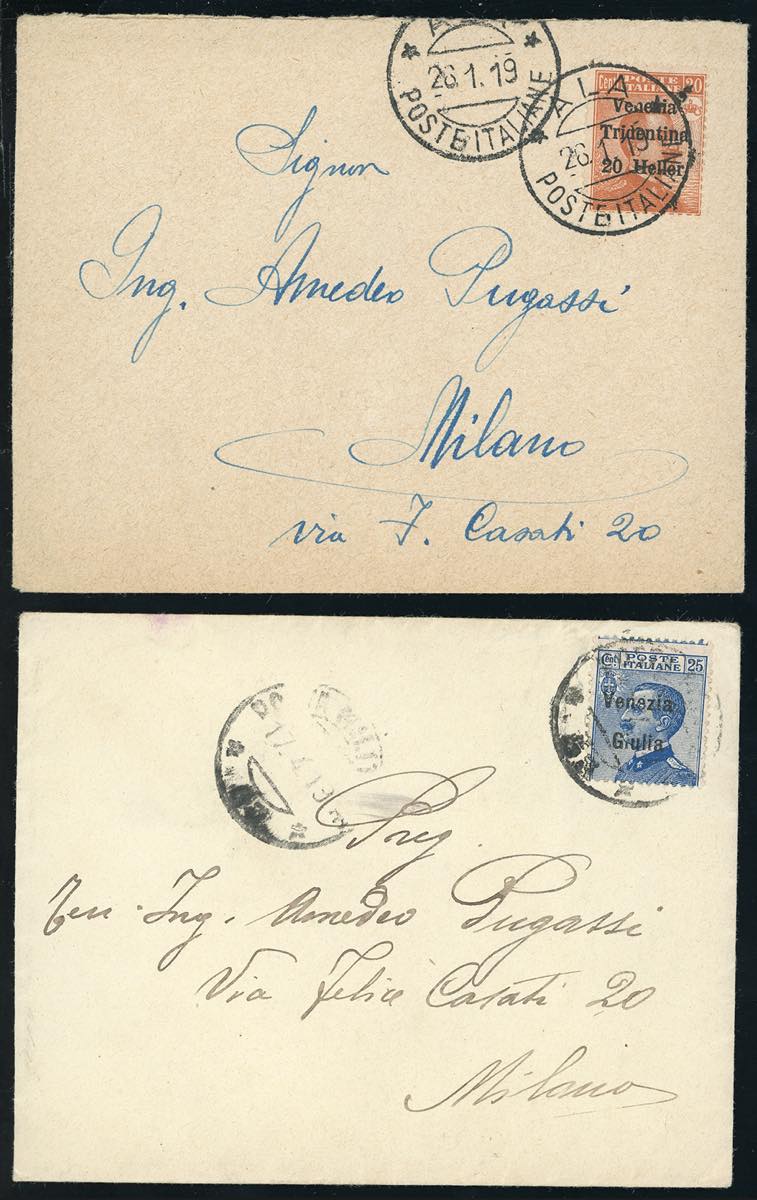 ALA
28.1.19
POSTE ITALIANE
ALA
28.1.19
POSTE ITALIANE
Cent POSTE ITALIANE 20
Venezia
Tridentina
20 Heller
Signor
Ing. Amedeo Pugassi
Milano
via F. Casati 20
Cent. POSTE ITALIANE 25
Venezia
Giulia
17.4.19
Preg.
Ten. Ing. Amedeo Pugassi
Via Felice Casati 20
Milano